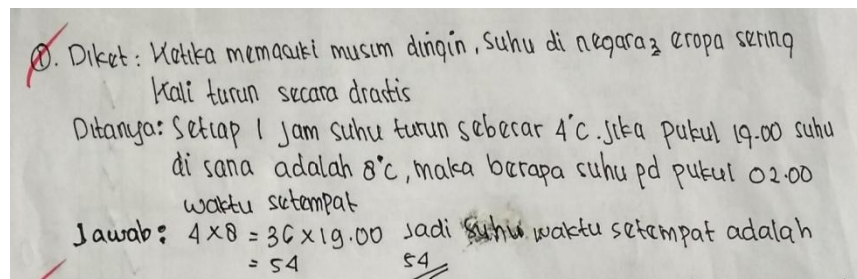 ①. Diket : Ketika memasuki musim dingin, Suhu di negara2 eropa sering
kali turun secara drastis
Ditanya: Setiap 1 jam suhu turun sebesar 4°C. Jika pukul 19.00 suhu
di sana adalah 8°C, maka berapa suhu pd pukul 02.00
waktu setempat
Jawab : 4 x 8 = 36 x 19.00 Jadi suhu waktu setempat adalah
= 54 54